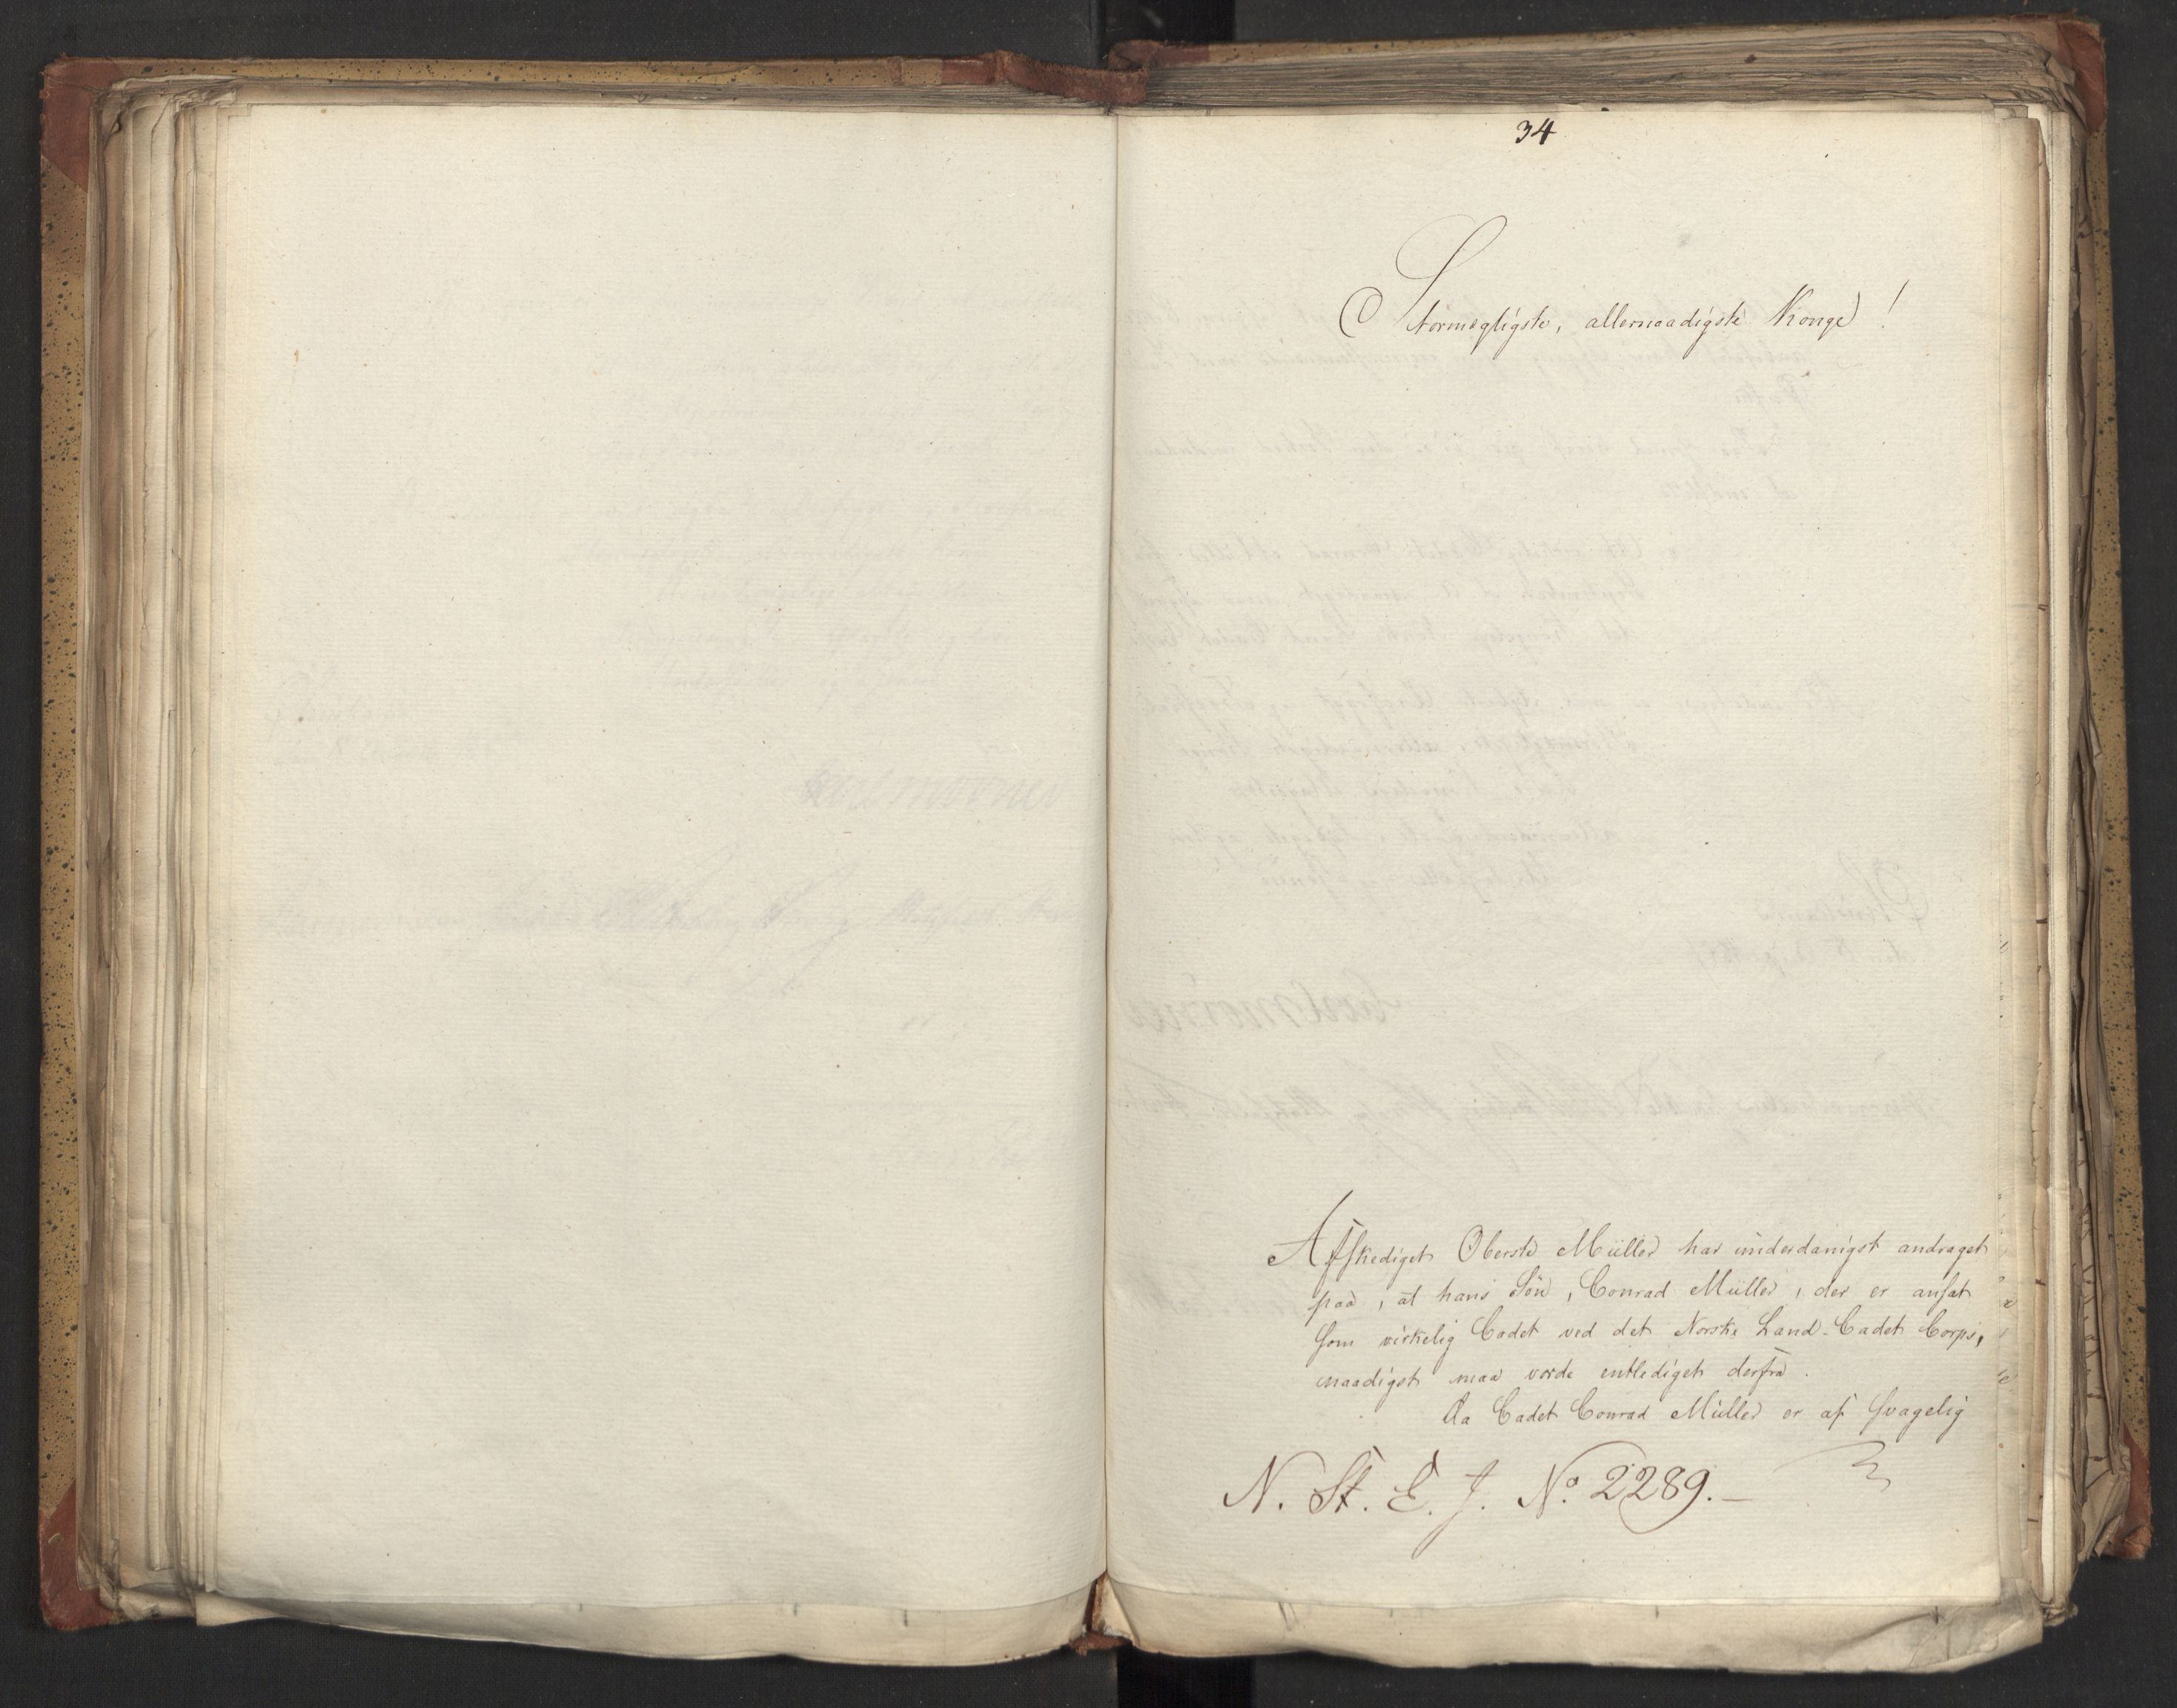 34
Stormægtigste, allernaadigste Konge!
Afskediget Oberste Müller har underdanigst andraget
paa, at hans Søn, Conrad Müller, der er ansat
som virkelig Cadet ved det Norske Land-Cadet Corps,
naadigst maa vorde entlediget derfra.
Da Cadet Conrad Müller er af svagelig
N. St. E. J. No. 2289.—